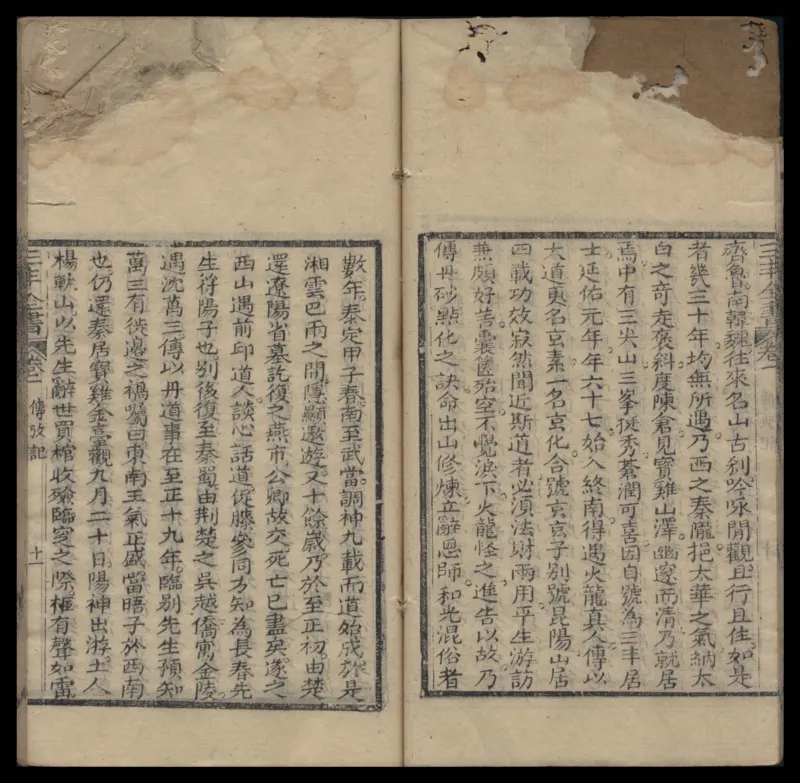 三丰全書 卷一
齊魯南韓魏往來名山古刹吟咏閒觀且行且住如是
者幾三十年均無所遇乃西之秦隴挹太華之氣納太
白之奇走褒斜度陳倉見寶雞山澤幽邃而清乃就居
焉中有三尖山三峯挺秀蒼潤可喜因自號為三丰居
士延佑元年年六十七始入終南得遇火龍真人傳以
大道更名玄素一名玄化合號玄玄子別號昆陽山居
四載功效寂然聞近斯道者必須法財兩用平生游訪
兼頗好善囊篋殆空不覺淚下火龍怪之進告以故乃
傳丹砂點化之訣命出山修煉立辭恩師和光混俗者
數年泰定甲子春南至武當調神九載而道始成於是
湘雲巴雨之間隱顯遨遊又十餘歲乃於至正初由楚
還遼陽省墓訖復之燕市公卿故交死亡已盡矣遂之
西山遇前邱道人談心話道促膝參同方知為長春先
生符陽子也別後復至秦蜀由荆楚之吳越僑寓金陵
遇沈萬三傳以丹道事在至正十九年臨別先生預知
萬三有徙邊之禍囑曰東南王氣正盛當晤子於西南
也仍還秦居寶雞金臺觀九月二十日陽神出游土人
楊軌山以先生辭世買棺收殮臨窆之際柩有聲如雷
三丰全書 卷一 傳攷記 十一